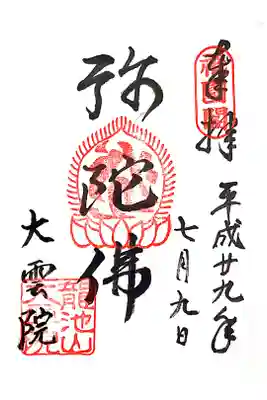 奉拝
平成廿九年
七月九日
弥陀佛
大雲院
龍池山